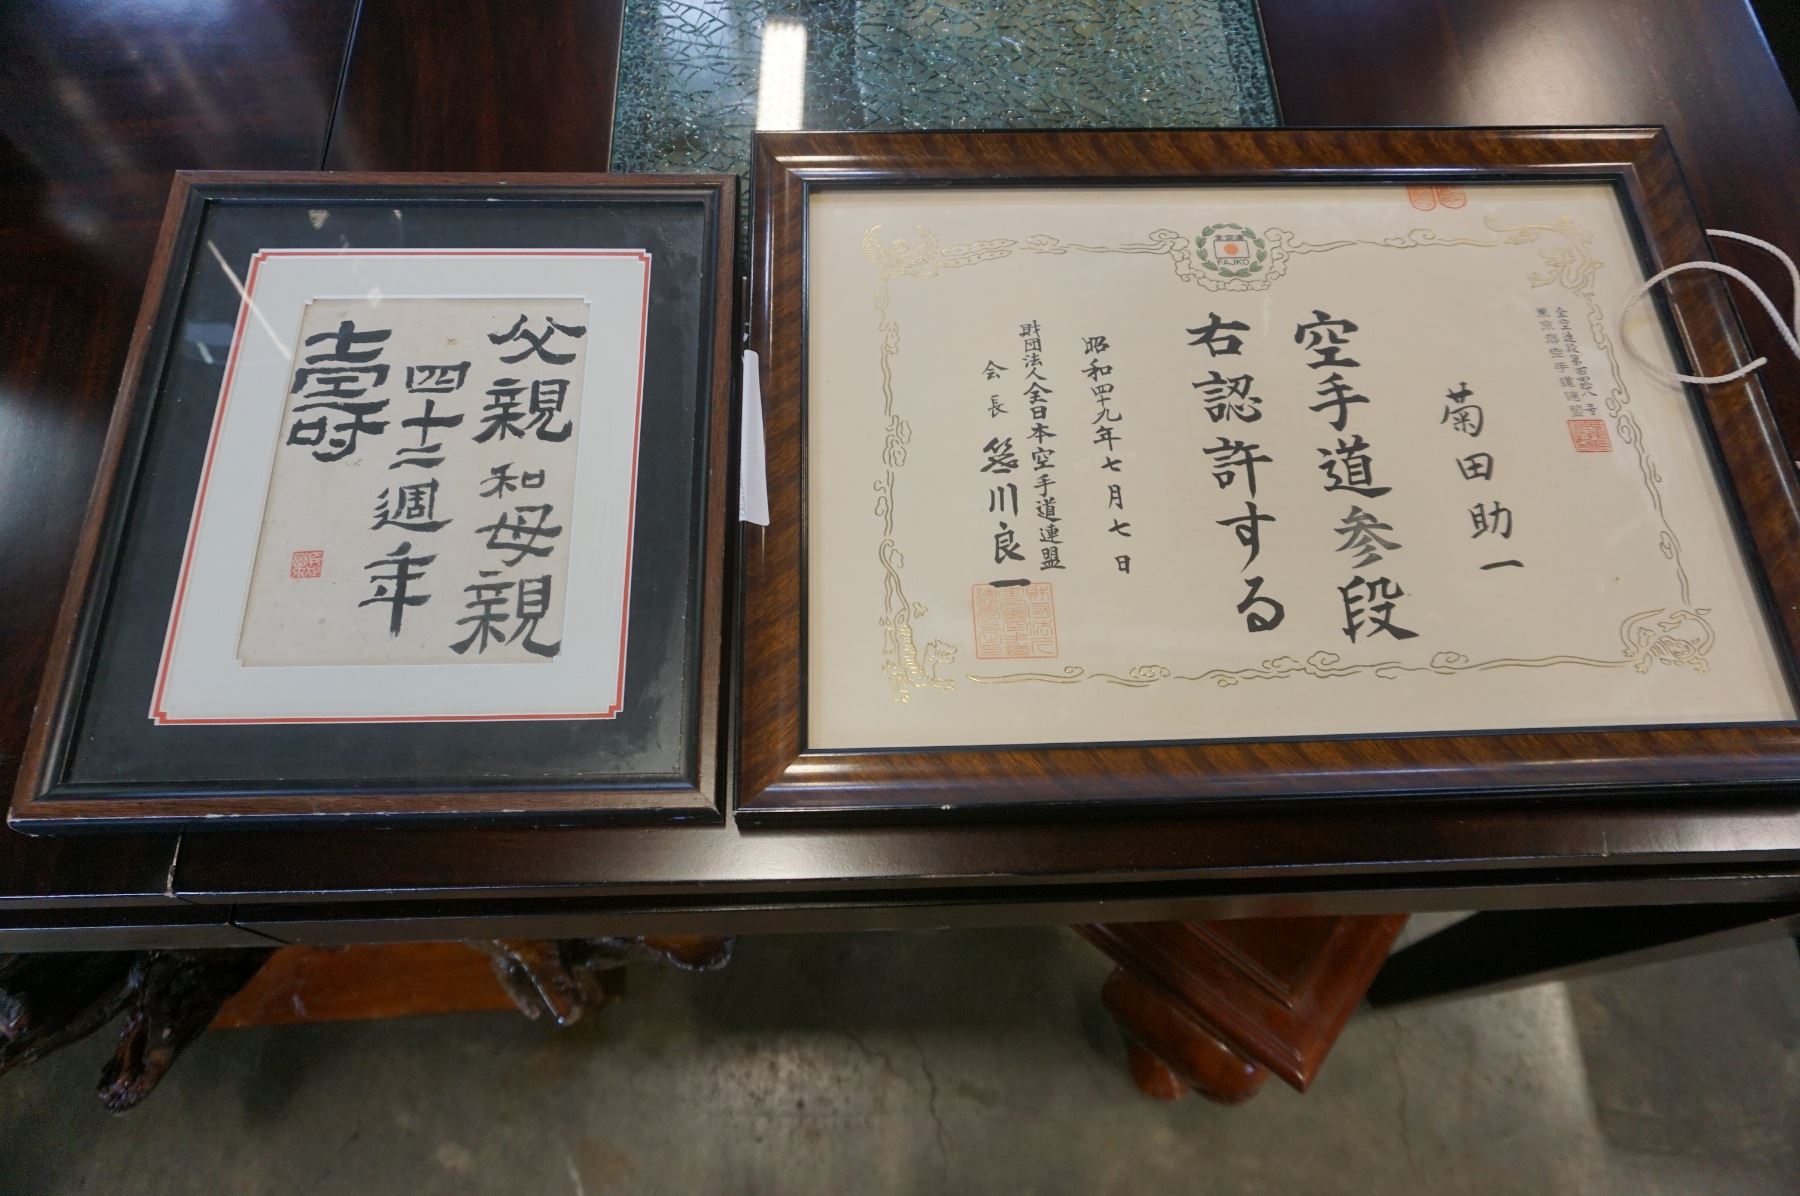 父親和母親
四十二週年
壽
全空連
FAJKO
全空連段第百四拾八号
東京都空手道連盟
菊田助一
空手道参段
右認許する
昭和四十九年七月七日
財団法人全日本空手道連盟
会長 笹川良一